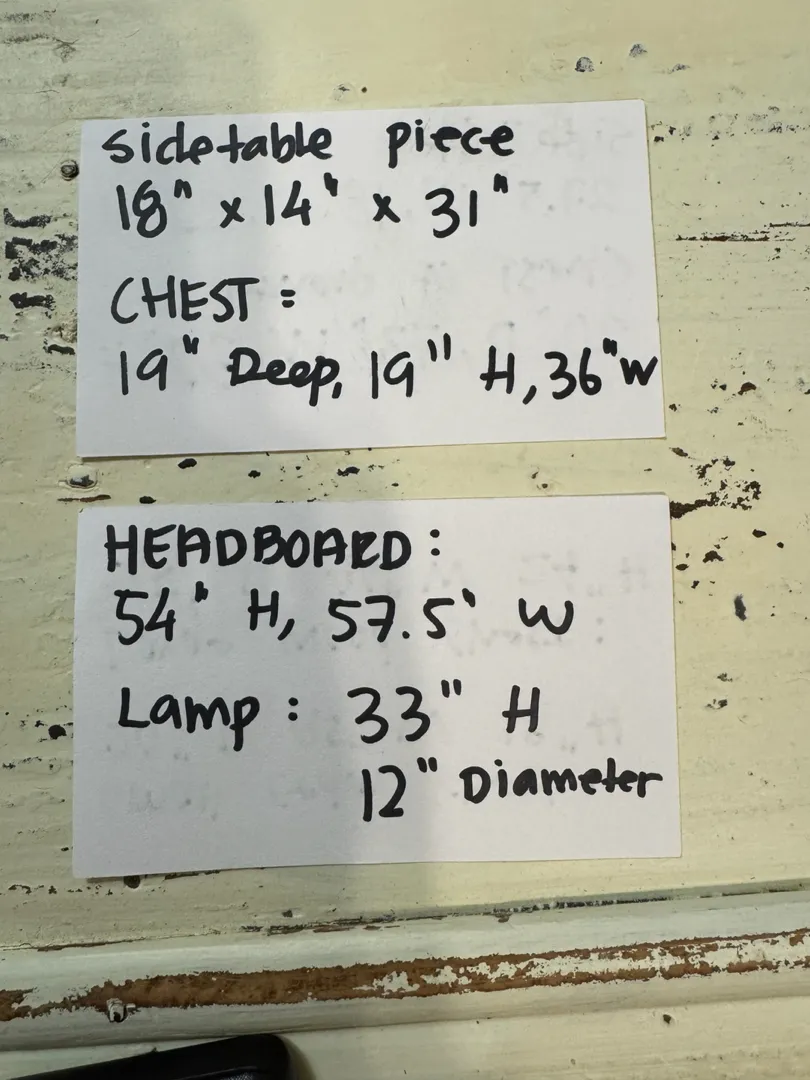 sidetable piece
18" x 14' x 31"
CHEST :
19" Deep, 19" H, 36"W
HEADBOARD :
54" H, 57.5' W
Lamp : 33" H
12" Diameter